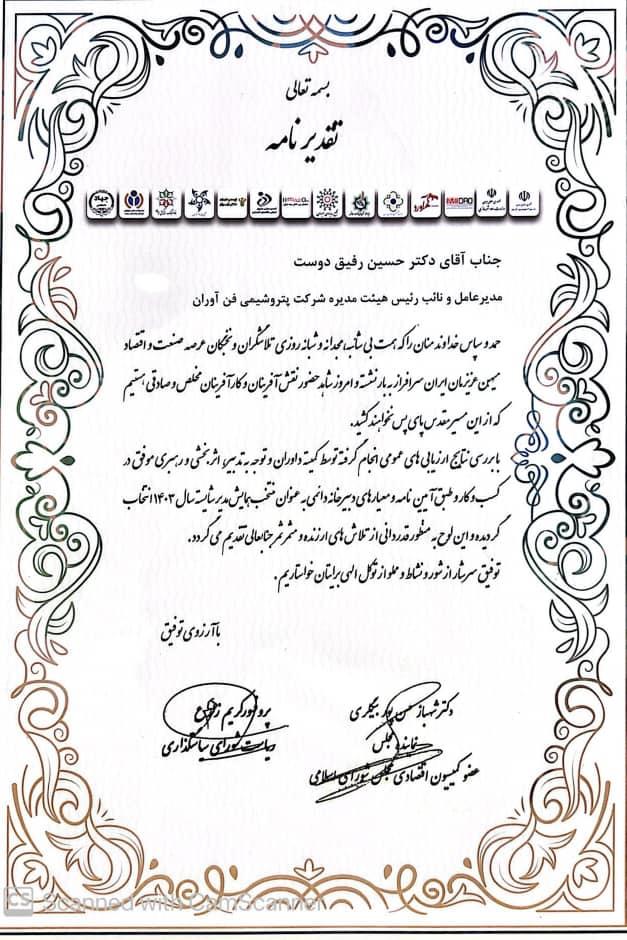 بسمه تعالی
تقدیرنامه
جهاد
IMIDRO
جناب آقای دکتر حسین رفیق دوست
مدیرعامل و نائب رئیس هیئت مدیره شرکت پتروشیمی فن آوران
حمد و سپاس خداوند منان را که همت بی شائبه، مجدانه و شبانه روزی تلاشگران و نخبگان عرصه صنعت و اقتصاد
میهن عزیزمان ایران سرافراز به بار نشسته و امروز شاهد حضور نقش آفرینان و کارآفرینان مخلص و صادقی هستیم
که از این مسیر مقدس پای پس نخواهند کشید.
با بررسی نتایج ارزیابی های عمومی انجام گرفته توسط کمیته داوران و توجه به تدبیر، اثربخشی و رهبری موفق در
کسب و کار و طبق آئین نامه و معیارهای دبیرخانه دائمی به عنوان منتخب همایش مدیر شایسته سال ۱۴۰۳ انتخاب
گردیده و این لوح به منظور قدردانی از تلاش های ارزنده و مثمرثمر جنابعالی تقدیم می گردد.
توفیق سرشار از شور و نشاط و مملو از توکل الهی برایتان خواستاریم.
با آرزوی توفیق
دکتر شهباز حسن پور بیگلری
نماینده مجلس
عضو کمیسیون اقتصادی مجلس شورای اسلامی
پروفسور کریم
ریاست شورای سیاستگذاری
CS Scanned with CamScanner